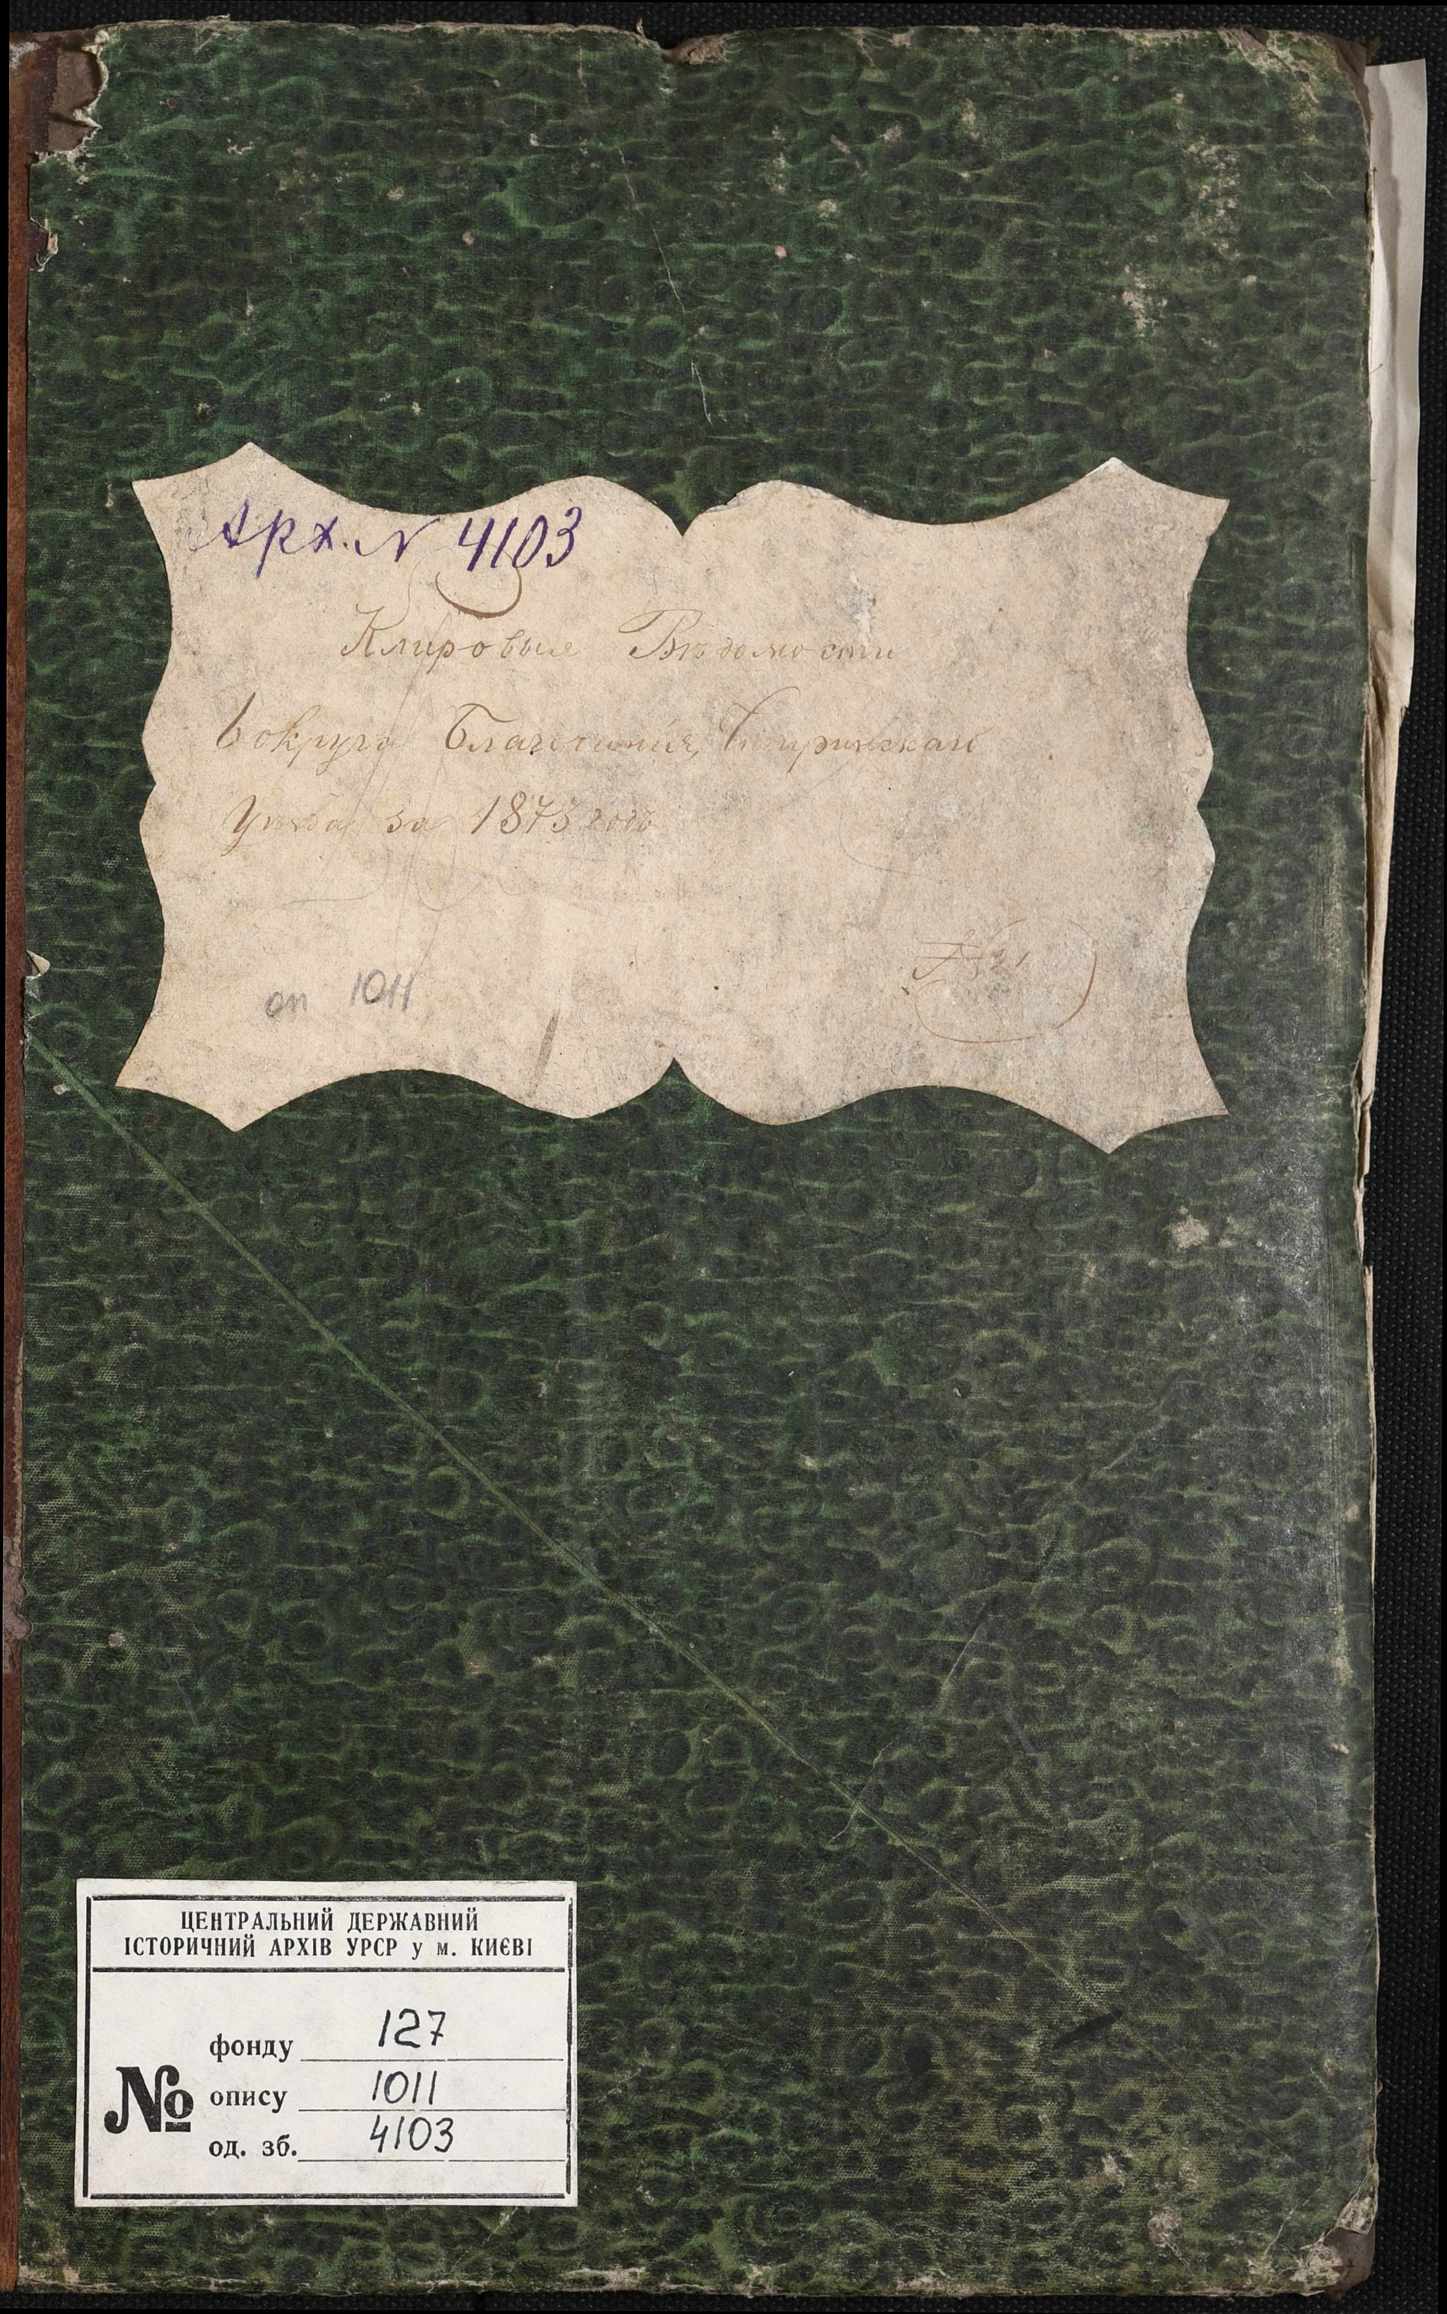 Арх. N 4103
Клировые Вѣдомости
6 округа Благочинія,
Уѣзда за 1873 годъ
оп 1011
ЦЕНТРАЛЬНИЙ ДЕРЖАВНИЙ
ІСТОРИЧНИЙ АРХІВ УРСР у м. КИЄВІ
№
фонду 127
опису 1011
од. зб. 4103